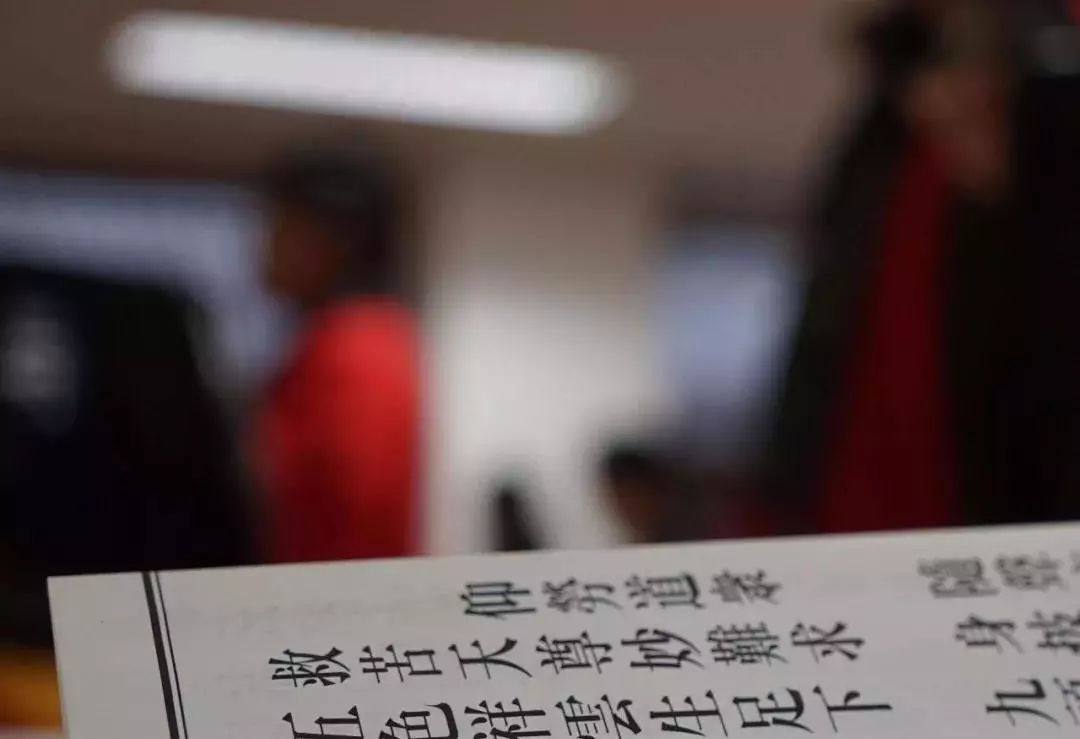 仰勞道眾 隨
救苦天尊妙難求 身披
五色祥雲生足下 九